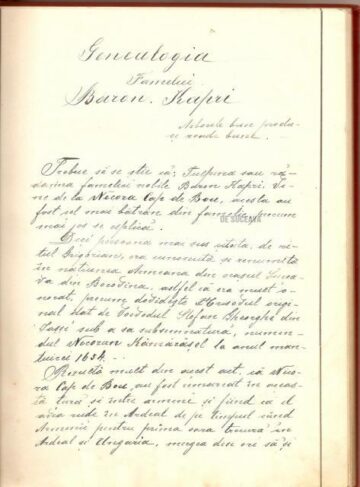 Genealogia
Familiei
Baron. Kapri
Arborele bun produ-
ce roade bune.
Trebue să se știe că, Tulpina sau ră-
decina familiei nobile Baron Kapri. Ve-
ne de la Nicora Cap de Bou, acesta au
fost cel mai batrân din familia precum
mai jos se esplică.
DE SUCEAVA
Deci persona mai sus citată, de ri-
tul Grigorian, era cunoscută și renumită
în națiunea Armeana din orașul Sucea-
va din Bucovina, astfel că era mult o-
norat, precum dovidește Hrisovul origi-
nal dat de Voivodul Stefan Gheorghe din
Iași sub a sa subsemnatură, numin-
dul Nicoran Kămărășel la anul man-
tuirei 1654.
Resultă mult din acest act, că Nico-
ra Cap de Bou, au fost însemnat în acea
tară și între armeni și fiind ca el
avea rude în Ardeal de pe timpul când
Armenii pentru prima oara trecură în
Ardeal și Ungaria, mergea des ori să și